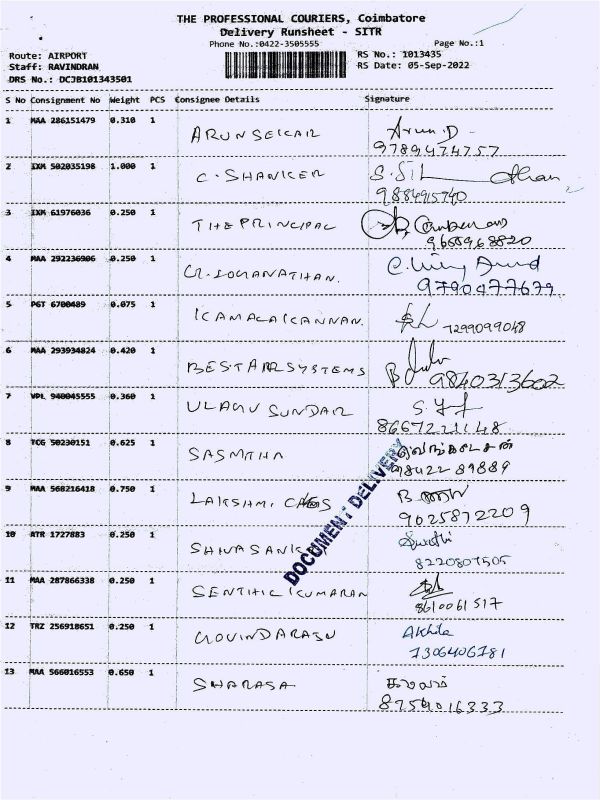 THE PROFESSIONAL COURIERS, Coimbatore
Delivery Runsheet - SITR
Phone No.:0422-3505555 Page No.:1
Route: AIRPORT RS No.: 1013435
Staff: RAVINDRAN RS Date: 05-Sep-2022
DRS No.: DCJB101343501
S No Consignment No Weight PCS Consignee Details Signature
1 MAA 286151479 0.310 1 ARUNSEKAR Arun.D
9789474757
2 IXM 502035198 1.000 1 C. SHANKER
988495740
3 IXM 61976036 0.250 1 THE PRINCIPAL
9668968820
4 MAA 292236906 0.250 1 LOGANATHAN.
9790477679
5 PGT 6700489 0.075 1 KAMALAKANNAN. 7299099048
6 MAA 293934824 0.420 1 BESTAIRSYSTEMS
9840313602
7 VPL 940045555 0.360 1 ULAGU SUNDAR
8667221148
8 TCG 50230151 0.625 1 SASMITHA வெங்கடேசன்
98422 89889
9 MAA 568216418 0.750 1 LAKSHMI
9025872209
10 ATR 1727883 0.250 1 Swathi
8220807505
DOCUMENT DELIVERY
11 MAA 287866338 0.250 1 SENTHIL KUMARAN
8610061517
12 TRZ 256918651 0.250 1 GOVINDARASU Akhila
7306406781
13 MAA 566016553 0.650 1 SHARASA
8754016333